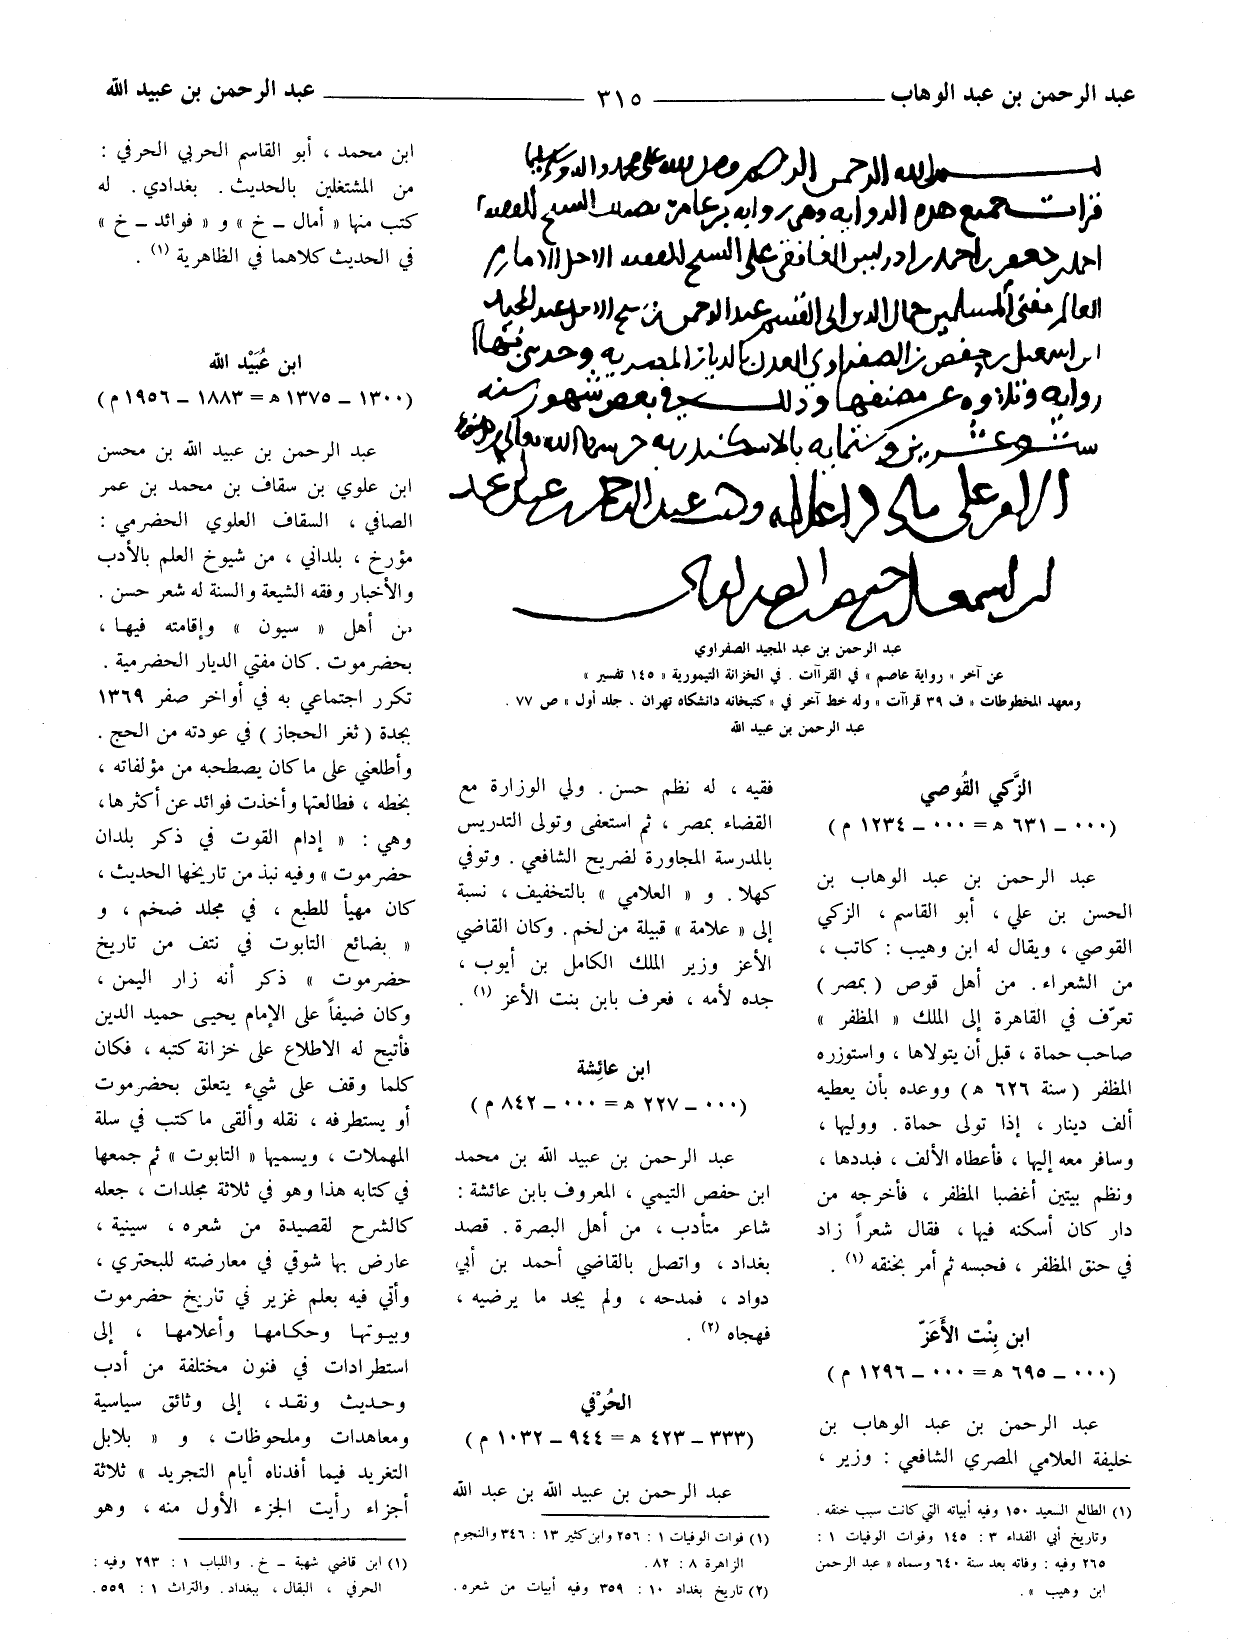 عبد الرحمن بن عبد الوهاب ــــــ ٣١٥ ــــــ عبد الرحمن بن عبيد الله
عبد الرحمن بن عبد المجيد الصفراوي
عن آخر « رواية عاصم » في القراآت . في الخزانة التيمورية « ١٤٥ تفسير »
ومعهد المخطوطات « ف ٣٩ قراآت » وله خط آخر في « كتبخانه دانشكاه تهران ، جلد أول » ص ٧٧ .
عبد الرحمن بن عبيد الله
الزَّكي القُوصي
(٠٠٠ ــ ٦٣١ ه = ٠٠٠ ــ ١٢٣٤ م)
عبد الرحمن بن عبد الوهاب بن
الحسن بن علي ، أبو القاسم ، الزكي
القوصي ، ويقال له ابن وهيب : كاتب ،
من الشعراء . من أهل قوص ( بمصر )
تعرّف في القاهرة إلى الملك « المظفر »
صاحب حماة ، قبل أن يتولاها ، واستوزره
المظفر ( سنة ٦٢٦ ه ) ووعده بأن يعطيه
ألف دينار ، إذا تولى حماة . ووليها ،
وسافر معه إليها ، فأعطاه الألف ، فبددها ،
ونظم بيتين أغضبا المظفر ، فأخرجه من
دار كان أسكنه فيها ، فقال شعراً زاد
في حنق المظفر ، فحبسه ثم أمر بخنقه (١) .
ابن بِنْت الأَعَزّ
(٠٠٠ ــ ٦٩٥ ه = ٠٠٠ ــ ١٢٩٦ م)
عبد الرحمن بن عبد الوهاب بن
خليفة العلامي المصري الشافعي : وزير ،
(١) الطالع السعيد ١٥٠ وفيه أبياته التي كانت سبب خنقه .
وتاريخ أبي الفداء ٣ : ١٤٥ وفوات الوفيات ١ :
٢٦٥ وفيه : وفاته بعد سنة ٦٤٠ وسماه « عبد الرحمن
ابن وهيب » .
فقيه ، له نظم حسن . ولي الوزارة مع
القضاء بمصر ، ثم استعفى وتولى التدريس
بالمدرسة المجاورة لضريح الشافعي . وتوفي
كهلا . و « العلامي » بالتخفيف ، نسبة
إلى « علامة » قبيلة من لخم . وكان القاضي
الأعز وزير الملك الكامل بن أيوب ،
جده لأمه ، فعرف بابن بنت الأعز (١) .
ابن عائِشة
(٠٠٠ ــ ٢٢٧ ه = ٠٠٠ ــ ٨٤٢ م)
عبد الرحمن بن عبيد الله بن محمد
ابن حفص التيمي ، المعروف بابن عائشة :
شاعر متأدب ، من أهل البصرة . قصد
بغداد ، واتصل بالقاضي أحمد بن أبي
دواد ، فمدحه ، ولم يجد ما يرضيه ،
فهجاه (٢) .
الحُرْفي
(٣٣٣ ــ ٤٢٣ ه = ٩٤٤ ــ ١٠٣٢ م)
عبد الرحمن بن عبيد الله بن عبد الله
(١) فوات الوفيات ١ : ٢٥٦ وابن كثير ١٣ : ٣٤٦ والنجوم
الزاهرة ٨ : ٨٢ .
(٢) تاريخ بغداد ١٠ : ٣٥٩ وفيه أبيات من شعره .
ابن محمد ، أبو القاسم الحربي الحرفي :
من المشتغلين بالحديث . بغدادي . له
كتب منها « أمال ــ خ » و « فوائد ــ خ »
في الحديث كلاهما في الظاهرية (١) .
ابن عُبَيْد الله
(١٣٠٠ ــ ١٣٧٥ ه = ١٨٨٣ ــ ١٩٥٦ م)
عبد الرحمن بن عبيد الله بن محسن
ابن علوي بن سقاف بن محمد بن عمر
الصافي ، السقاف العلوي الحضرمي :
مؤرخ ، بلداني ، من شيوخ العلم بالأدب
والأخبار وفقه الشيعة والسنة له شعر حسن .
من أهل « سيون » وإقامته فيها ،
بحضرموت . كان مفتي الديار الحضرمية .
تكرر اجتماعي به في أواخر صفر ١٣٦٩
بجدة ( ثغر الحجاز ) في عودته من الحج .
وأطلعني على ما كان يصطحبه من مؤلفاته ،
بخطه ، فطالعتها وأخذت فوائد عن أكثرها،
وهي : « إدام القوت في ذكر بلدان
حضرموت » وفيه نبذ من تاريخها الحديث ،
كان مهيأ للطبع ، في مجلد ضخم ، و
« بضائع التابوت في نتف من تاريخ
حضرموت » ذكر أنه زار اليمن ،
وكان ضيفاً على الإمام يحيى حميد الدين
فأتيح له الاطلاع على خزانة كتبه ، فكان
كلما وقف على شيء يتعلق بحضرموت
أو يستطرفه ، نقله وألقى ما كتب في سلة
المهملات ، ويسميها « التابوت » ثم جمعها
في كتابه هذا وهو في ثلاثة مجلدات ، جعله
كالشرح لقصيدة من شعره ، سينية ،
عارض بها شوقي في معارضته للبحتري ،
وأتي فيه بعلم غزير في تاريخ حضرموت
وبيوتها وحكامها وأعلامها ، إلى
استطرادات في فنون مختلفة من أدب
وحديث ونقد ، إلى وثائق سياسية
ومعاهدات وملحوظات ، و « بلابل
التغريد فيما أفدناه أيام التجريد » ثلاثة
أجزاء رأيت الجزء الأول منه ، وهو
(١) ابن قاضي شهبة ــ خ . واللباب ١ : ٢٩٣ وفيه :
الحرفي ، البقال ، ببغداد . والتراث ١ : ٥٥٩ .